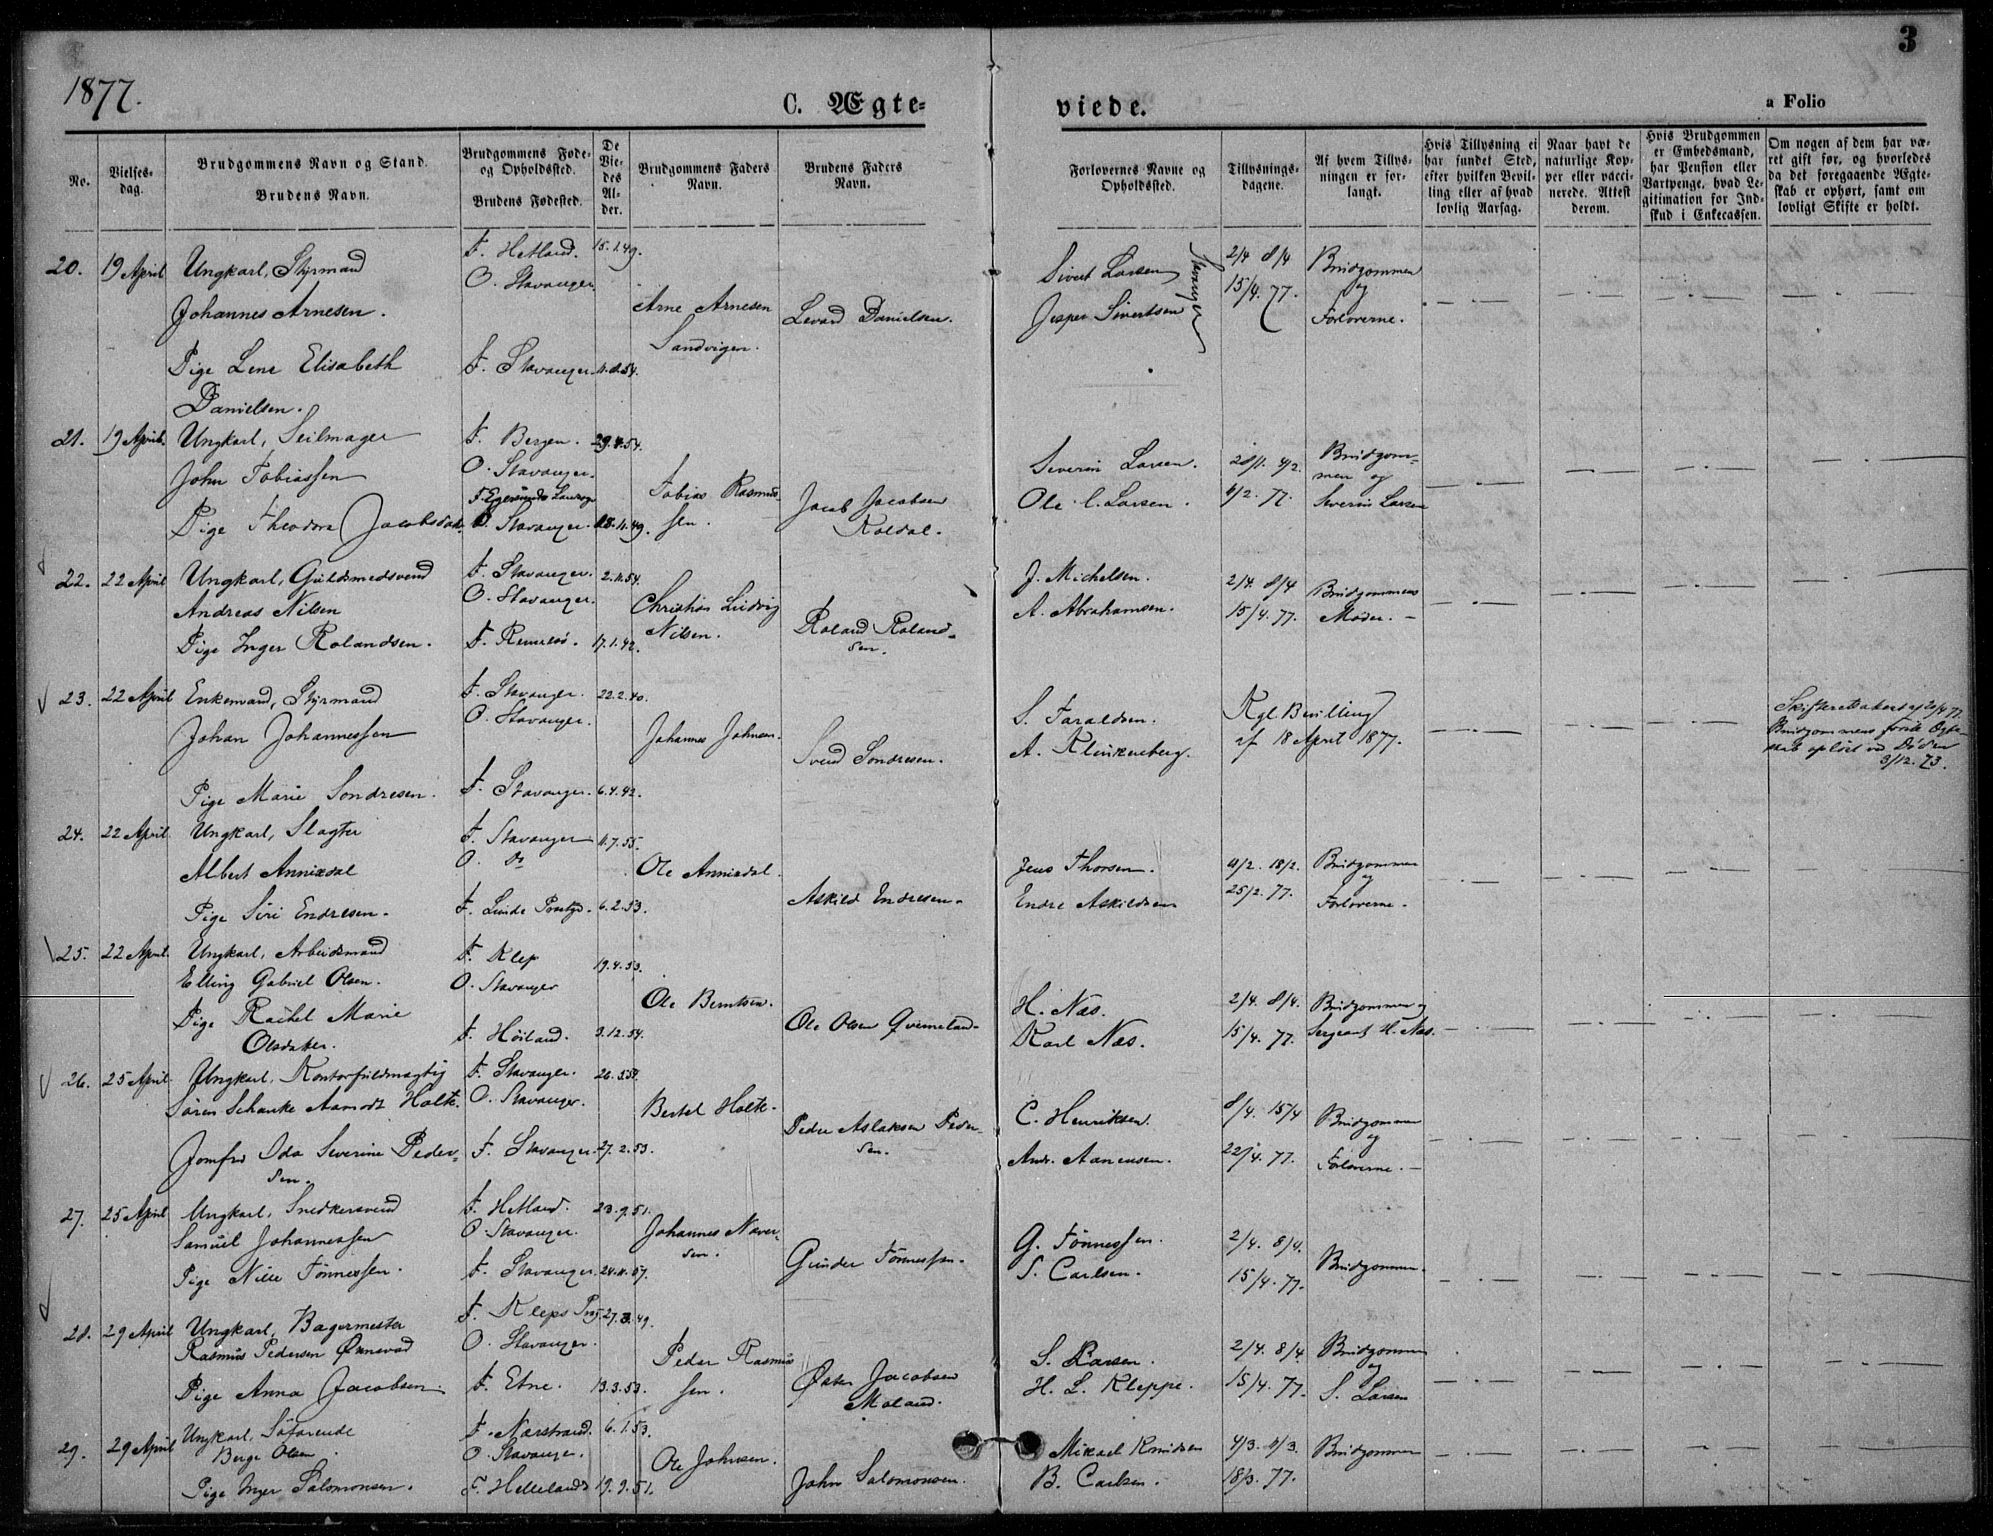 3
1877.
C. Ægte-
viede.
a Folio
No.
Vielses-
dag.
Brudgommens Navn og Stand.
Brudens Navn.
Brudgommens Føde-
og Opholdsted.
Brudens Fødested.
De
Vie-
des
Al-
der.
Brudgommens Faders
Navn.
Brudens Faders
Navn.
Forlovernes Navne og
Opholdsted.
Tillysnings-
dagene.
Af hvem Tillys-
ningen er for-
langt.
Hvis Tillysning ei
har fundet Sted,
efter hvilken Bevil-
ling eller af hvad
lovlig Aarsag.
Naar havt de
naturlige Kop-
per eller vacci-
nerede. Attest
derom.
Hvis Brudgommen
er Embedsmand,
har Pension eller
Vartpenge, hvad Le-
gitimation for Ind-
skud i Enkecassen.
Om nogen af dem har væ-
ret gift før, og hvorledes
da det foregaaende Ægte-
skab er ophørt, samt om
lovligt Skifte er holdt.
20. 19 April
Ungkarl, Styrmand
Johannes Arnesen.
Pige Lene Elisabeth
Danielsen.
F. Hetland. 15.1.49.
O. Stavanger.
F. Stavanger. 11.8.54.
Arne Arnesen
Sandvigen.
Levard Danielsen.
Sivert Larsen
Jesper Sivertsen
Stavanger
2/4 8/4
15/4. 77.
Brudgommen
og
Forloverne.
21. 19 April.
Ungkarl, Seilmager
John Tobiassen
Pige Theodora Jacobsdat.
F. Bergen. 29.4.54.
O. Stavanger.
F. Egersunds Landsogn
O. Stavanger. 18.11.49.
Tobias Rasmus-
sen.
Jacob Jacobsen
Koldal.
Severin Larsen.
Ole C. Larsen.
28/1. 4/2.
11/2. 77.
Brudgom-
men og
Severin Larsen
22. 22 April
Ungkarl, Guldsmedsvend
Andreas Nilsen
Pige Inger Rolandsen.
F. Stavanger. 2.11.54.
O. Stavanger.
F. Rennesø. 17.1.42.
Christian Ludvig
Nilsen.
Roland Roland-
sen.
J. Michelsen.
A. Abrahamsen.
2/4. 8/4
15/4. 77.
Brudgommens
Moder.
23. 22 April
Enkemand, Styrmand
Johan Johannessen
Pige Marie Sondresen.
F. Stavanger. 22.2.40.
O. Stavanger.
F. Stavanger. 6.4.42.
Johannes Johnsen.
Svend Sondresen.
S. Taraldsen.
A. Klinkenberg.
Kgl. Bevilling
af 18 April 1877.
Skifteretsattest af 20/4 77.
Brudgommens forrige Ægte-
skab opløst ved Døden
3/12. 73.
24. 22 April.
Ungkarl, Slagter
Albert Annixdal
Pige Siri Endresen.
F. Stavanger 11.7.55.
O. do
F. Lunde Prstgj. 6.2.53.
Ole Annixdal.
Askild Endresen.
Jens Thorsen.
Endre Askildsen
4/2. 18/2.
25/2. 77.
Brudgommen
og
Forloverne.
25. 22 April.
Ungkarl, Arbeidsmand
Elling Gabriel Olsen.
Pige Rachel Marie
Olsdatter.
F. Klep 19.4.53.
O. Stavanger
F. Høiland. 9.12.54.
Ole Berntsen.
Ole Olsen Qverneland.
H. Næs.
Karl Næs.
2/4. 8/4.
15/4. 77.
Brudgommen og
Sergeant H. Næs.
26. 25 April.
Ungkarl, Kontorfuldmægtig
Søren Schanke Aamodt Holte.
Jomfru Oda Severine Peder-
sen.
F. Stavanger.
O. Stavanger.
F. Stavanger. 27.2.53.
Bertel Holte.
Peder Aslaksen Peder-
sen.
C. Henriksen.
Andr. Aanensen.
8/4. 15/4
22/4. 77.
Brudgommen
og
Forloverne.
27. 25 April
Ungkarl, Snedkersvend
Samuel Johannessen
Pige Nille Tønnessen.
F. Hetland. 23.9.51.
O. Stavanger.
F. Stavanger. 24.11.57.
Johannes Naver-
sen.
Gunder Tønnessen.
G. Tønnessen.
S. Carlsen.
2/4. 8/4.
15/4. 77.
Brudgommen.
28. 29 April
Ungkarl, Bagermester
Rasmus Pedersen Øxnevad
Pige Anna Jacobsen.
F. Kleps Prgj. 27.3.49.
O. Stavanger.
F. Etne. 13.3.53.
Peder Rasmus-
sen.
Østen Jacobsen
Moland.
S. Larsen.
H. L. Kleppe.
2/4. 8/4.
15/4. 77.
Brudgommen
og
S. Larsen
29. 29 April
Ungkarl, Søfarende
Berge Olsen.
Pige Inger Salomonsen.
F. Nærstrand. 6.1.53.
O. Stavanger.
F. Helleland. 19.9.51.
Ole Johnsen.
John Salomonsen.
Mikael Knudsen
B. Carlsen.
4/3. 11/3.
18/3. 77.
Brudgommen